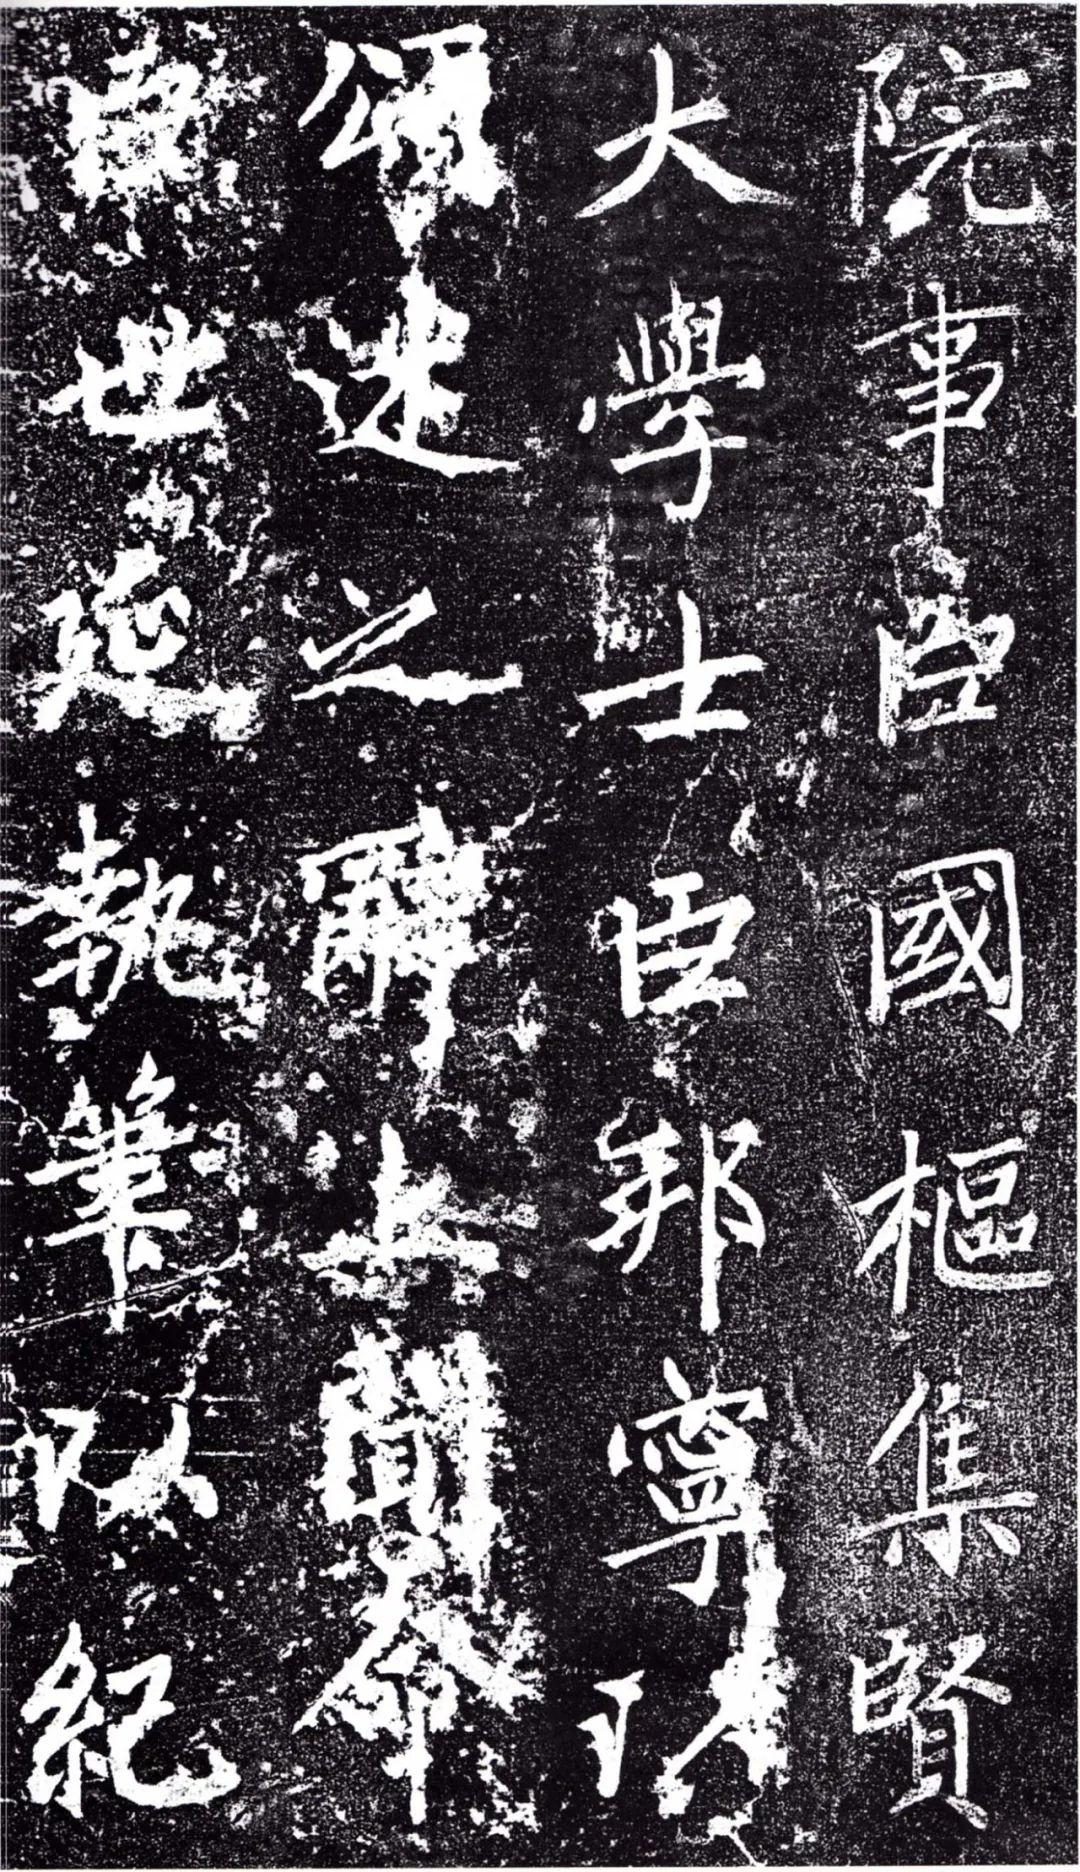 院事臣國樞集賢
大學士臣邦寧以
頌述之辭上聞命
世延執筆以紀